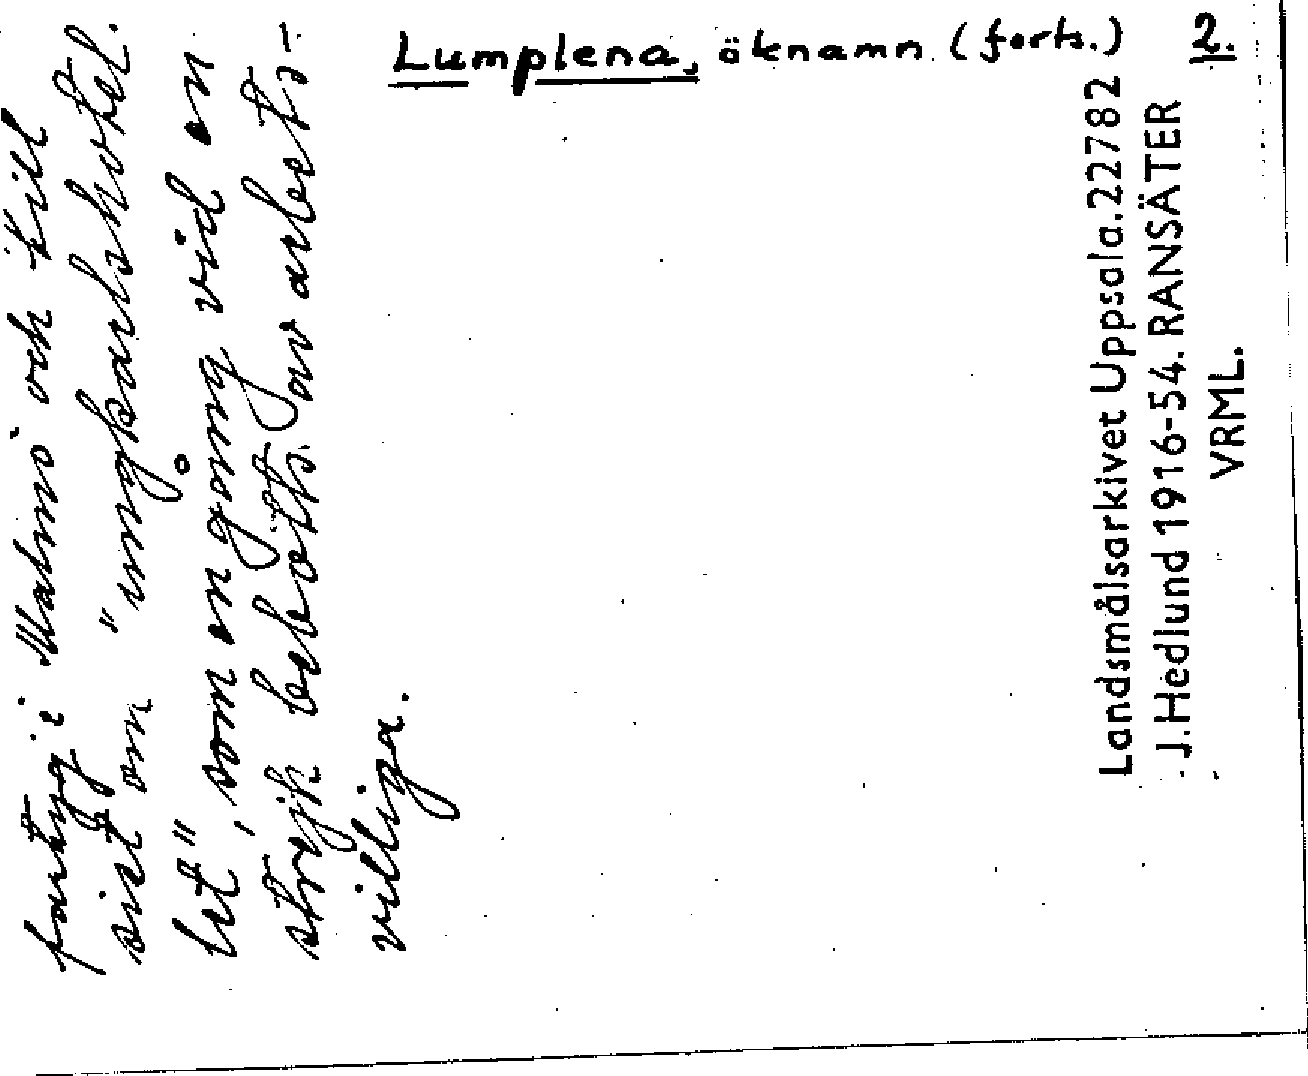 Lumplena, öknamn. (forts.) 2.
fartyg i Malmö och till
sist om "ungkarlshotel.
let", som en gång vid en
strejk bebotts av arbets-
villiga.
Landsmålsarkivet Uppsala. 22782
J. Hedlund 1916-54. RANSÄTER
VRML.